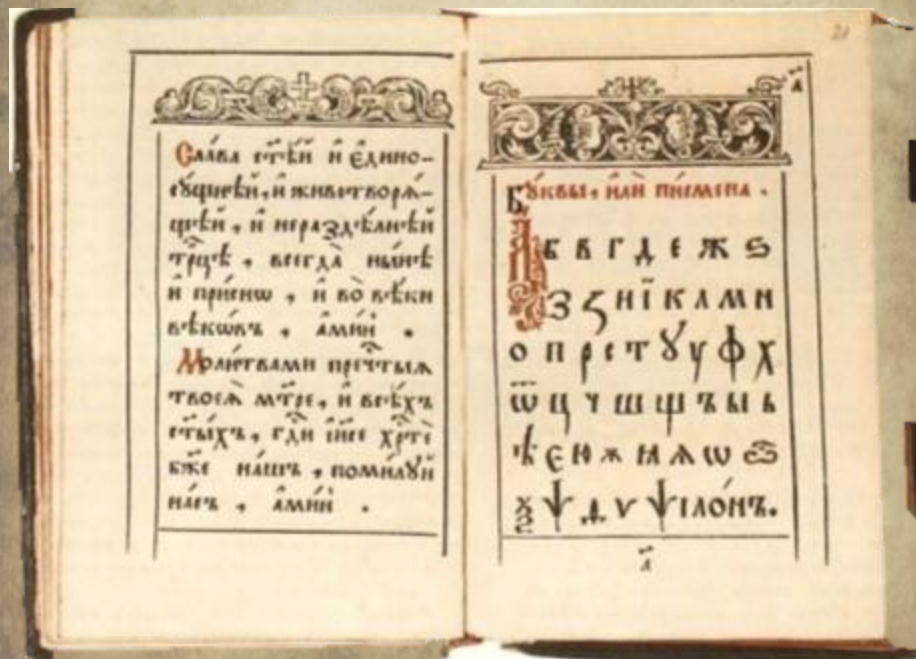 Сла́ва ст҃ѣ́й и҆ є҆дино-
сꙋ́щнѣй, и҆ животворѧ́-
щѣй, и҆ нераздѣ́лнѣй
трⷪ҇цѣ, всегда̀ ны́нѣ
и҆ при́снѡ, и҆ во̀ вѣ́ки
вѣкѡ́въ, а҆ми́нь.
Моли́твами пречⷭ҇тыѧ
твоеѧ̀ мт҃ре, и҆ всѣ́хъ
ст҃ы́хъ, гдⷭ҇и і҆и҃се хрⷭ҇тѐ
бж҃е на́шъ, поми́лꙋй
на́съ, а҆ми́нь.
Бꙋ́квы, и҆лѝ пи́смена.
А б в г д е ж ѕ
з ꙁ и ї к л м н
о п р с т ꙋ у ф х
ѿ ц ч ш щ ъ ы ь
ѣ є ю ѫ ꙗ ѧ ѡ
ѯ ѱ ѵ ѱїло́нъ.